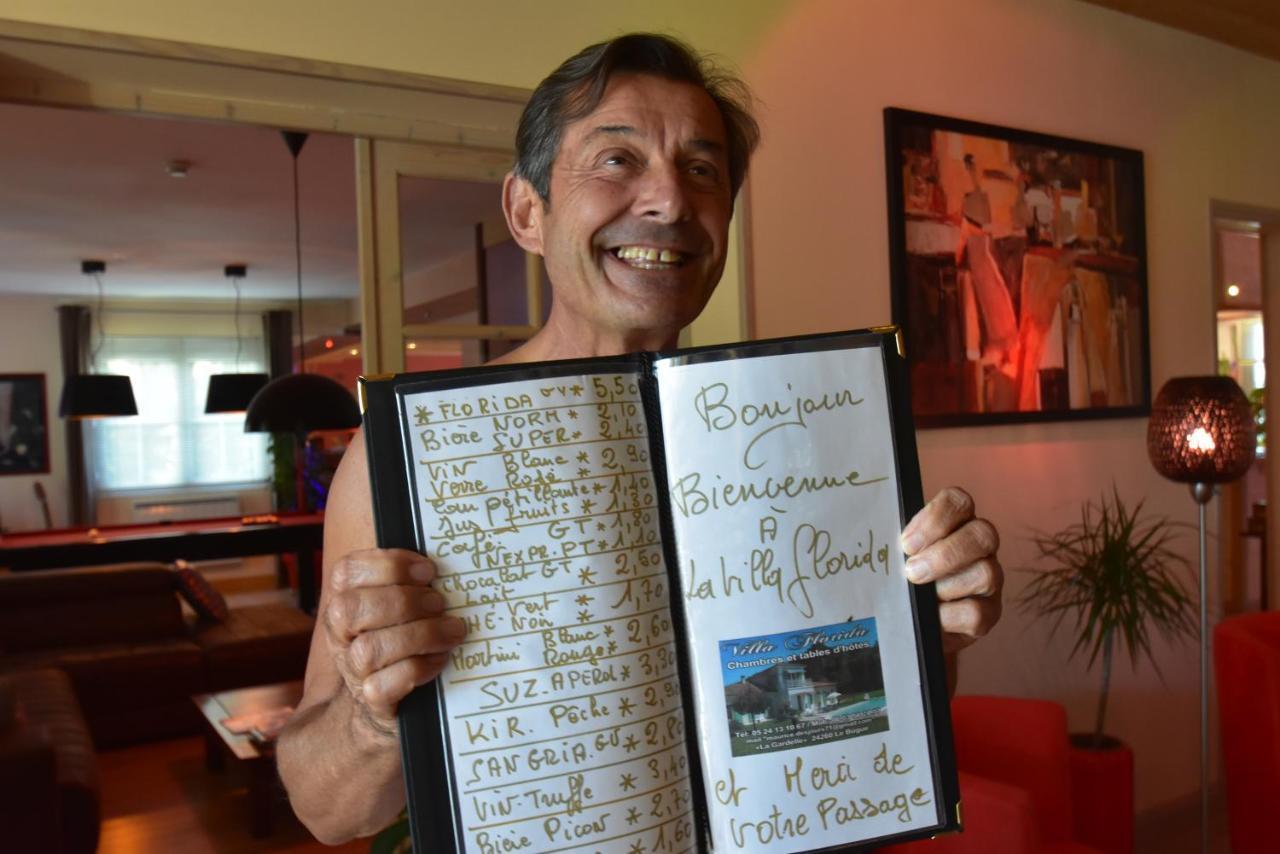 * FLORIDA GV * 5,50
Bière NORM * 2,10
SUPER * 2,40
Vin Blanc * 2,90
Verre Rosé *
Eau pétillante * 1,40
Jus fruits * 1,80
Café GT * 1,80
EXPR. PT * 1,10
Chocolat GT * 2,50
Lait
Vert * 1,70
THÉ Noir
Martini Blanc * 2,60
Rouge *
SUZ. APEROL * 3,30
KIR. Pêche * 2,90
SANGRIA. * 2,80
VIN-Truffe * 3,40
Bière Picon * 2,70
* 1,60
Bonjour
Bienvenue
À
La Villa Florida
Villa Florida
Chambres et tables d'hôtes
Tél: 05 24 13 10 67 /
mail "maurice.desjours71@gmail.com
«La Gardelle» 24260 Le Bugue
et Merci de
votre Passage